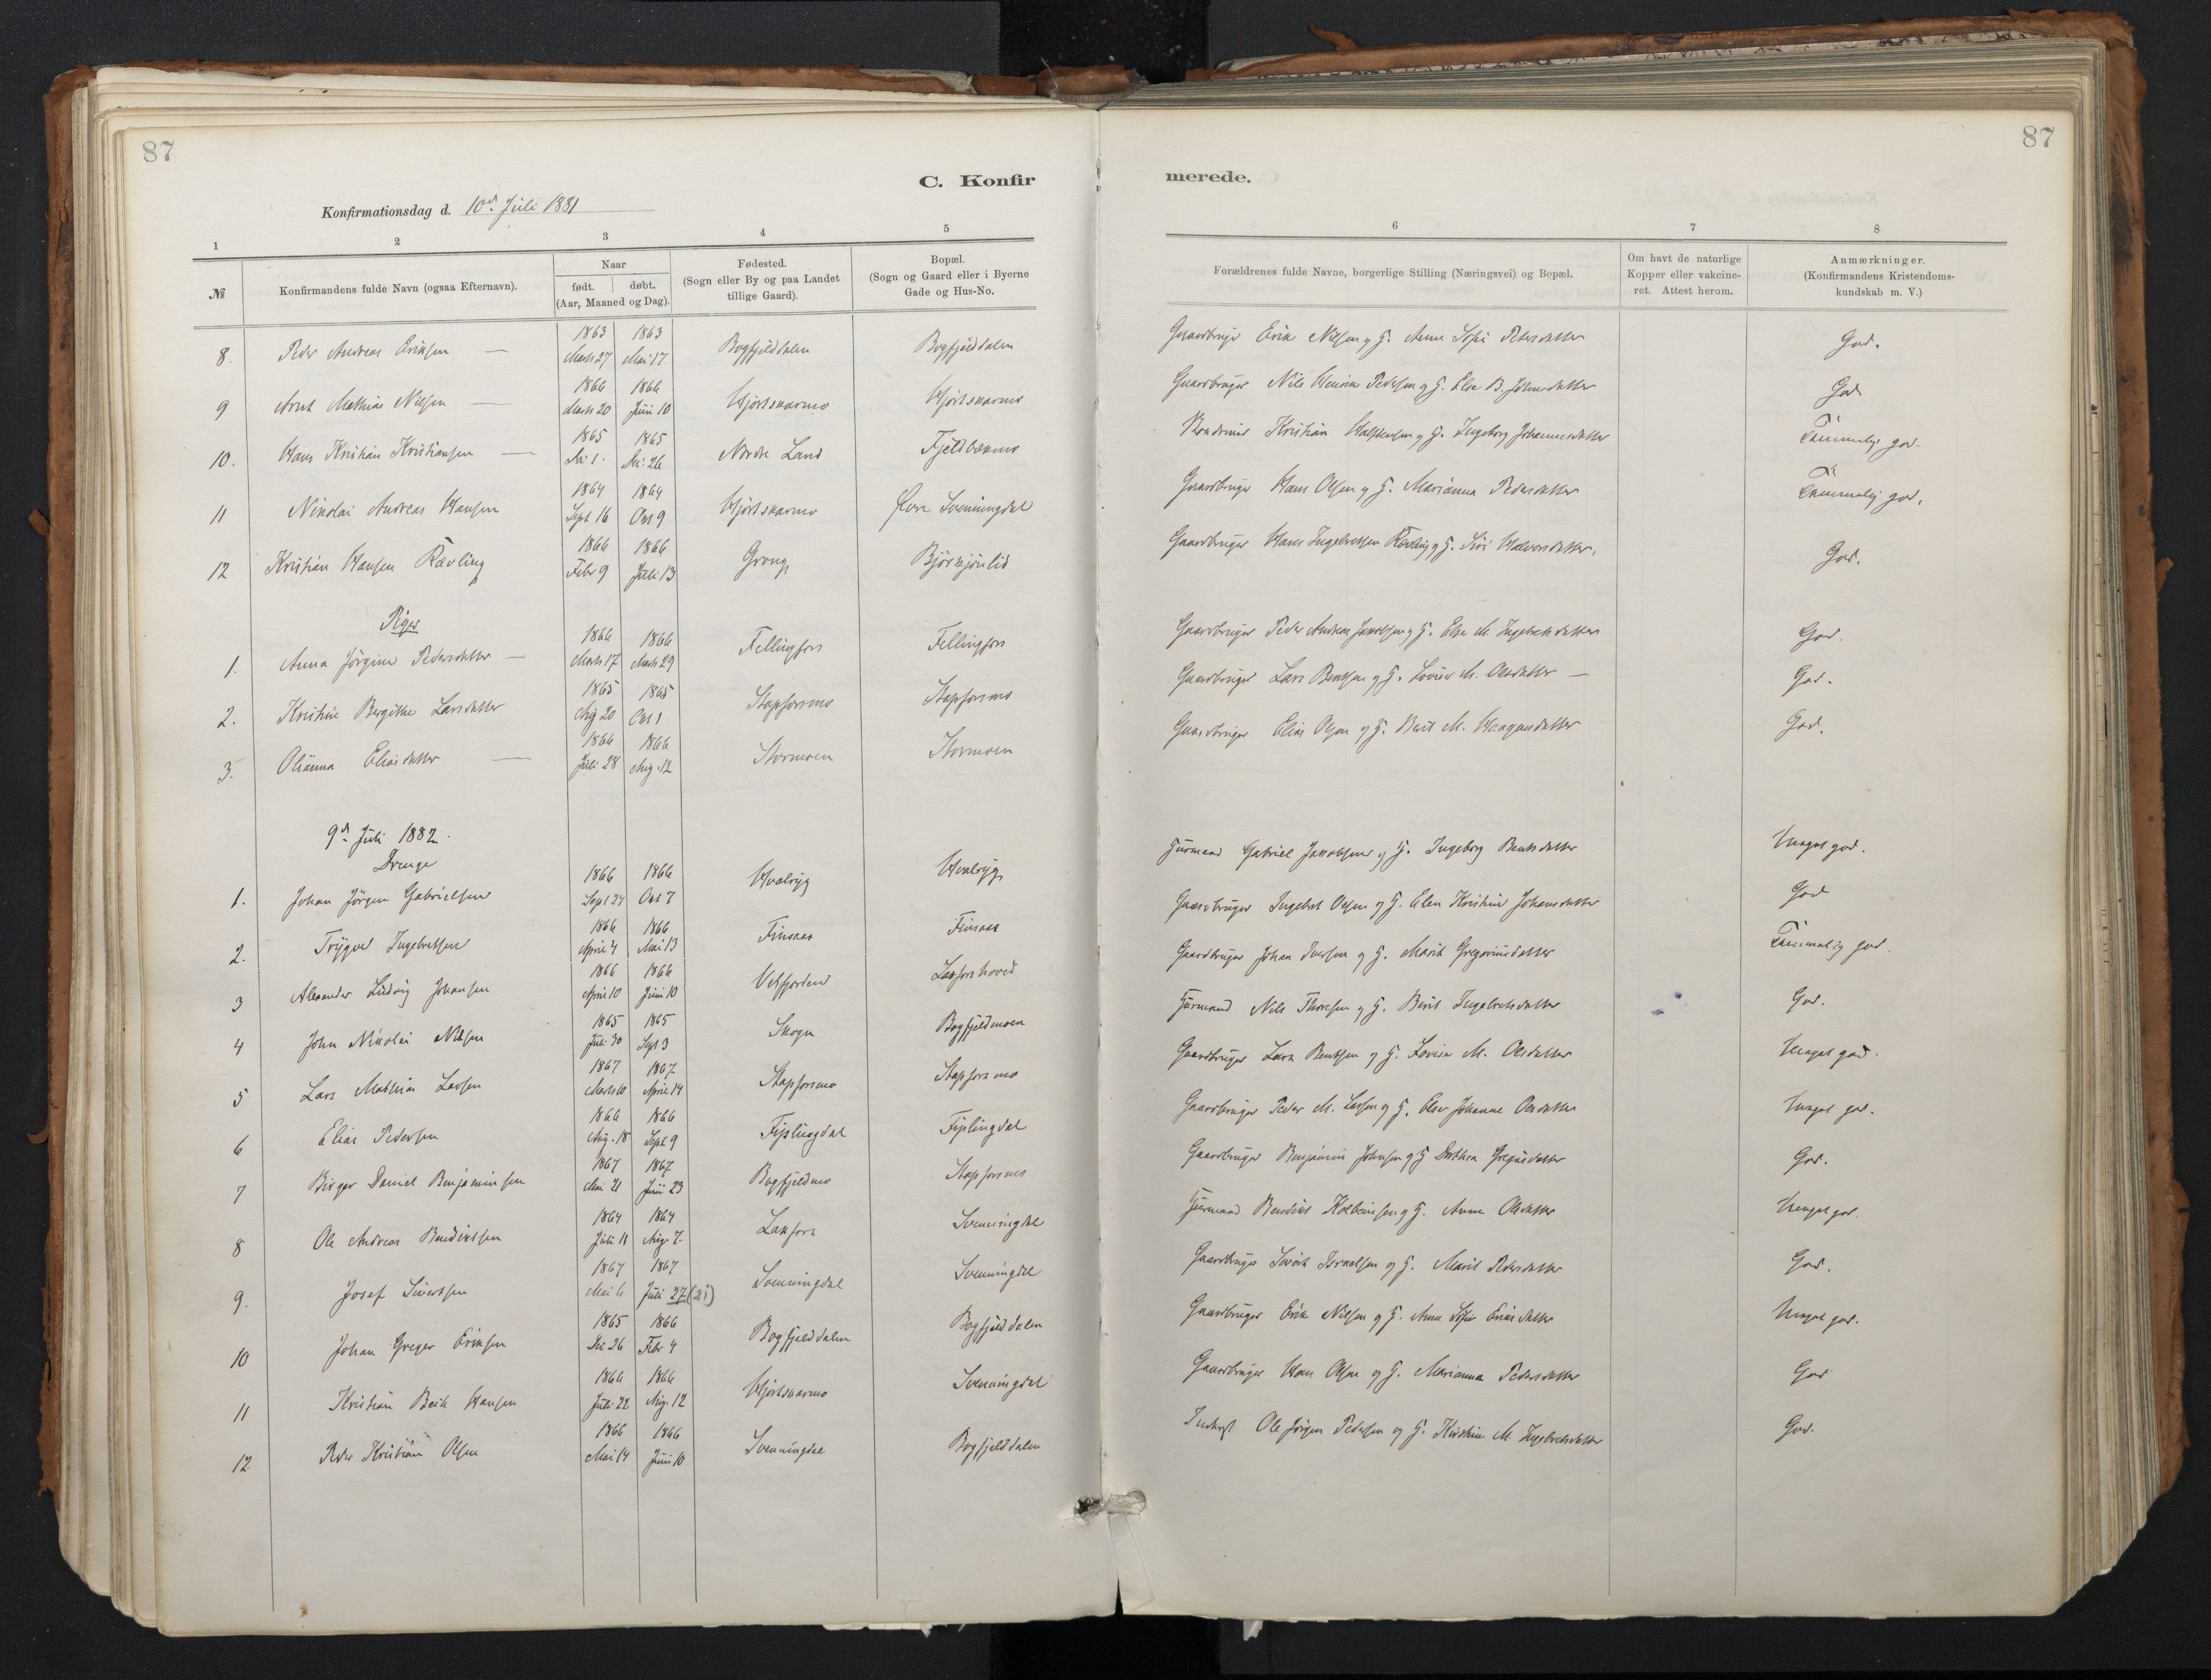 87
87
C. Konfir
merede.
Konfirmationsdag d. 10de Juli 1881
1 2 3 4 5 6 7 8
№ Konfirmandens fulde Navn (ogsaa Efternavn). Naar født. døbt. (Aar, Maaned og Dag). Fødested. (Sogn eller By og paa Landet tillige Gaard). Bopæl. (Sogn og Gaard eller i Byerne Gade og Hus-No. Forældrenes fulde Navne, borgerlige Stilling (Næringsvei) og Bopæl. Om havt de naturlige Kopper eller vakcineret. Attest herom. Anmærkninger. (Konfirmandens Kristendomskundskab m. V.)
8. Peder Andreas Eriksen — 1863 Marts 27 1863 Mai 17 Bogfjelddalen Bogfjelddalen Gaardbruger Erik Nielsen og H. Anne Sofie Pedersdatter God.
9 Arnt Mathias Nilsen — 1866 Marts 20 1866 Juni 10 Hjortskarmo Hjortskarmo Gaardbruger Nils Henrik Pedersen og H. Else B. Johnsdatter God
10. Hans Kristian Kristiansen — 1865 Dec. 1. 1865 Dec. 26 Nordre Land Fjeldbækmo Kristian og H. Ingeborg Johannesdatter Temmelig god.
11 Nikolai Andreas Hansen 1864 Sept 16 1864 Oct 9 Hjortskarmo Øvre Svenningdal Gaardbruger Hans Olsen og H. Marianna Pedersdatter Temmelig god.
12 Kristian Hansen Rævling 1866 Febr 9 1866 Juli 13 Grong Björkjönlid Gaardbruger Hans Ingebretsen Rævling og H. Siri Halvorsdatter. God.
Piger
1. Anna Jörgine Pedersdatter — 1866 Marts 17 1866 Marts 29 Fellingfors Fellingfors Gaardbruger Peder Andreas Jakobsen og H. Else M. Ingebretsdatter God.
2. Kristine Bergithe Larsdatter 1865 Aug 20 1865 Oct 1 Stapforsmo Stapforsmo Gaardbruger Lars Bentsen og H. Lovise M. Olsdatter — God.
3. Olianna Eliasdatter — 1866 Juli 28 1866 Aug. 12 Stormoen Stormoen Gaardbruger Elias Olsen og H. Berit M. Haagensdatter God.
9de Juli 1882.
Drenge
1. Johan Jörgen Gabrielsen 1866 Sept 24 1866 Oct 7 Hvalryg Hvalryg Husmand Gabriel Jakobsen og H. Ingeborg Bentsdatter Meget god.
2. Trygve Ingebretsen 1866 April 4 1866 Mai 13 Finsaas Finsaas Gaardbruger Ingebret Olsen og H. Elen Kristine Johansdatter God
3 Alexander Ludvig Johansen 1866 April 10 1866 Juni 10 Velfjorden Laxforshoved Gaardbruger Johan Iversen og H. Marit Gregoriusdatter Temmelig god.
4 John Nikolai Nilsen 1865 Juli 30 1865 Sept 3 Skogn Bogfjeldmoen Husmand Nils Thoresen og H. Berit Ingebretsdatter God.
5 Lars Mathias Larsen 1867 Marts 10 1867 April 14 Stapforsmo Stapforsmo Gaardbruger Lars Bentsen og H. Lovise M. Olsdatter Meget god.
6 Elias Pedersen 1866 Aug. 18 1866 Sept 9 Fiplingdal Fiplingdal Gaardbruger Peder M. Larsen og H. Else Johanne Olsdatter Meget god.
7 Birger Daniel Benjaminsen 1867 Mai 21 1867 Juni 23 Bogfjeldmo Stapforsmo Gaardbruger Benjamin Johnsen og H Dorthea Gregusdatter God.
8 Ole Andreas Bendiksen 1864 Juli 11 1864 Aug. 7. Laxfors Svenningdal Husmand Bendikt Kolbeinsen og H. Anne Olsdatter Meget god.
9. Josef Sivertsen 1867 Mai 6 1867 Juli 27 (21) Svenningdal Svenningdal Gaardbruger Sivert Israelsen og H. Marit Pedersdatter God.
10 Johan Greger Eriksen 1865 Dec 26 1866 Febr 4 Bogfjelddalen Bogfjelddalen Gaardbruger Erik Nilsen og H. Anne Sofie Eriksdatter Meget god.
11 Kristian Berik Hansen 1866 Juli 22 1866 Aug. 12 Hjortskarmo Svenningdal Gaardbruger Hans Olsen og H. Marianna Pedersdatter God
12 Peder Kristian Olsen 1866 Mai 14 1866 Juni 10 Svenningdal Bogfjelddalen Inderst Ole Jörgen Pedersen og H. Kirstine M. Ingebretsdatter God.